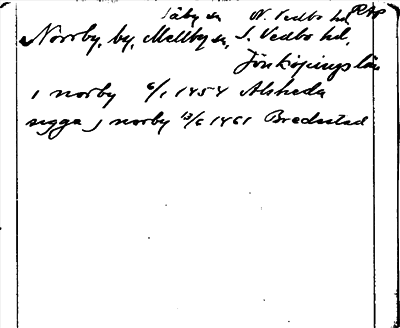 Säby sn N. Vedbo hd
Norrby, by, Mellby sn, S. Vedbo hd,
Jönköpings län
i norby 6/1 1454 Alsheda
sygga j norby 13/6 1461 Bredestad